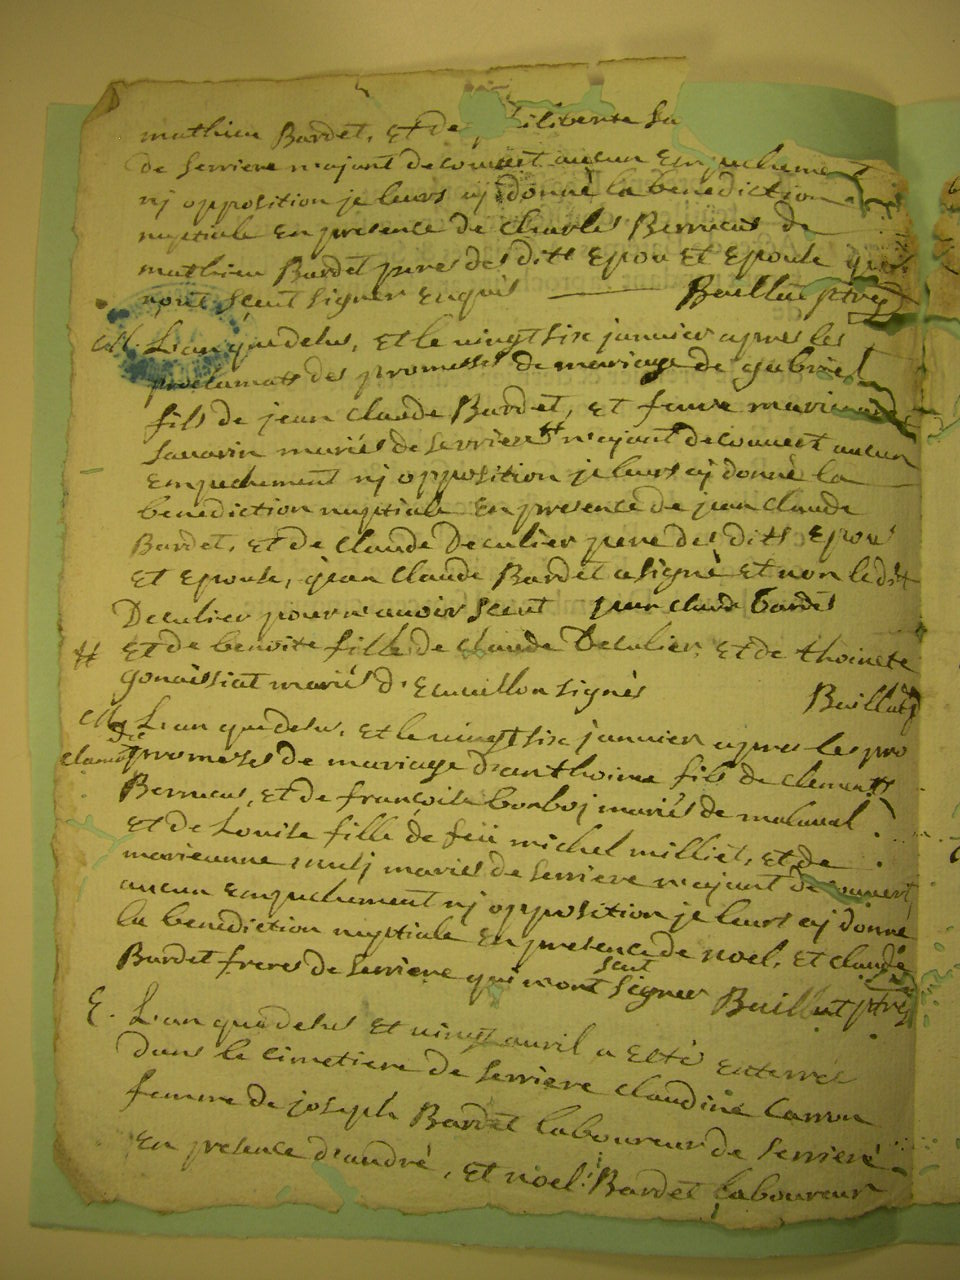 mathieu Bardet, et de philiberte Sa
de Serriere n'ajant decouvert aucun Empechement
nj opposition je leurs aj donné la benediction
nuptiale En presence de charle Berruens de
mathieu Bardet peres des ditt Epou et Epouse qui
n'ont sçeut signer enquis Baillat ptre
M. L'an que desus, et le vingt six janvier apres les
proclamatt des promesses de mariage de gabriel
fils de jean claude Bardet, et feue marieanne
Savarin mariés de Serriere # n'ajant decouvert aucun
Empechement nj opposition je leurs aj donné la
benediction nuptiale En presence de jean claude
Bardet, et de claude Deculier pere des ditt Epou
et Epouse, jean claude Bardet a signé et non ledit
Deculier pour n'avoir sceut jean claude bardet
# et de benoite fille de claude Deculier, et de thoinete
gonaissiat mariés d' signés Baillat
M. L'an que desus, et le vingt six janvier apres les pro
clama de promesses de mariage d'anthoine fils de clement
Berruens, et de françoise bonboj mariés de malaval
et de Louise fille de feü michel milliet, et de
marieanne mariés de Serriere n'ajant decouvert
aucun Empechement nj opposition je leurs aj donné
la benediction nuptiale En presence de noel, et claude
Bardet freres de Serriere qui n'ont sceut signer Baillat ptre
E. L'an que desus et vingt avril a esté enterrée
dans le cimetiere de Serriere claudine Carron
femme de joseph Bardet laboureur de Serriere
En presence d'andré, et noel Bardet laboureur